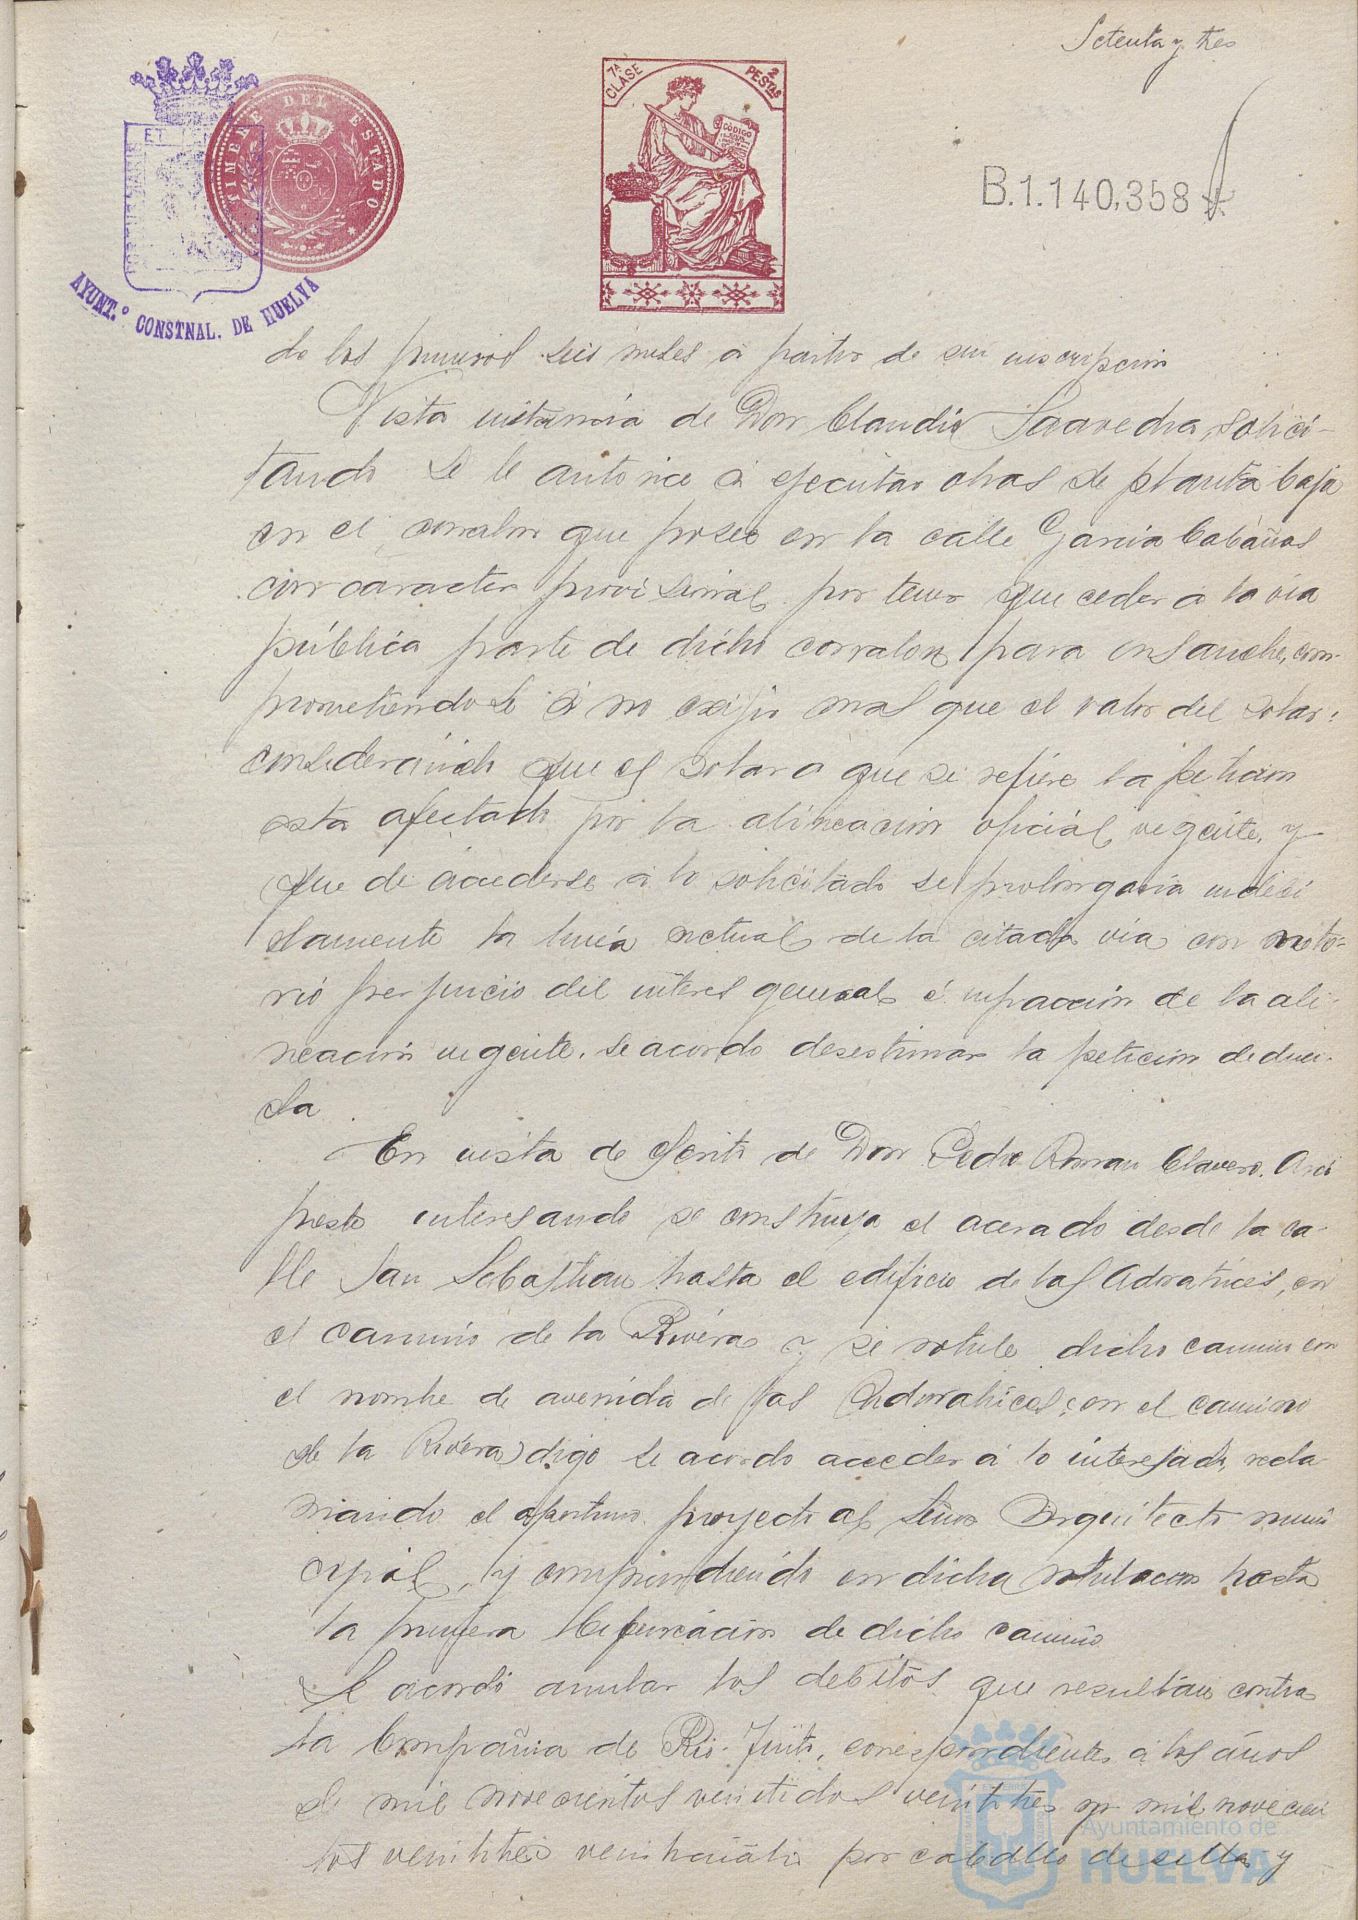 Setenta y tres
TIMBRE DEL ESTADO
7ª CLASE
2 PESTAS
CÓDIGO
B.1.140,358
AYUNT.º CONSTNAL. DE HUELVA
de los primeros seis meses a partir de su inscripcion
Vista instancia de Don Claudio Saavedra, solici-
tando se le autorice á ejecutar obras de planta baja
en el corralon que posee en la calle Garcia Cabañas
con caracter provisional por tener que ceder a la via
pública parte de dicho corralon para ensanche, com-
prometiendose á no exijir mas que el valor del solar:
considerando que el solar a que se refiere la peticion
esta afectado por la alineacion oficial vigente, y
que de accederse a lo solicitado se prolongaria indebi
damente la linea actual de la citada via con noto-
rio perjuicio del interes general é infraccion de la ali-
neacion vigente. se acordo desestimar la peticion deduci-
da.
En vista de escrito de Don Pedro Roman Clavero. Arci
preste interesando se construya el acerado desde la ca-
lle San Sebastian hasta el edificio de las Adoratrices, en
el camino de la Rivera y se rotule dicho camino con
el nombre de avenida de las Adoratrices, en el camino
de la Rivera) digo se acordo acceder á lo interesado, recla
mando el oportuno proyecto al Señor Arquitecto muni
cipal, y comprendiendo en dicha rotulacion hasta
la primera bifurcacion de dicho camino
Se acordó anular los debitos que resultan contra
la Compañia de Rio-Tinto, correspondientes á los años
de mil novecientos veintidos veintitres y mil novecien
tos veintitres veinticuatro por caballo de silla y
Ayuntamiento de
HUELVA